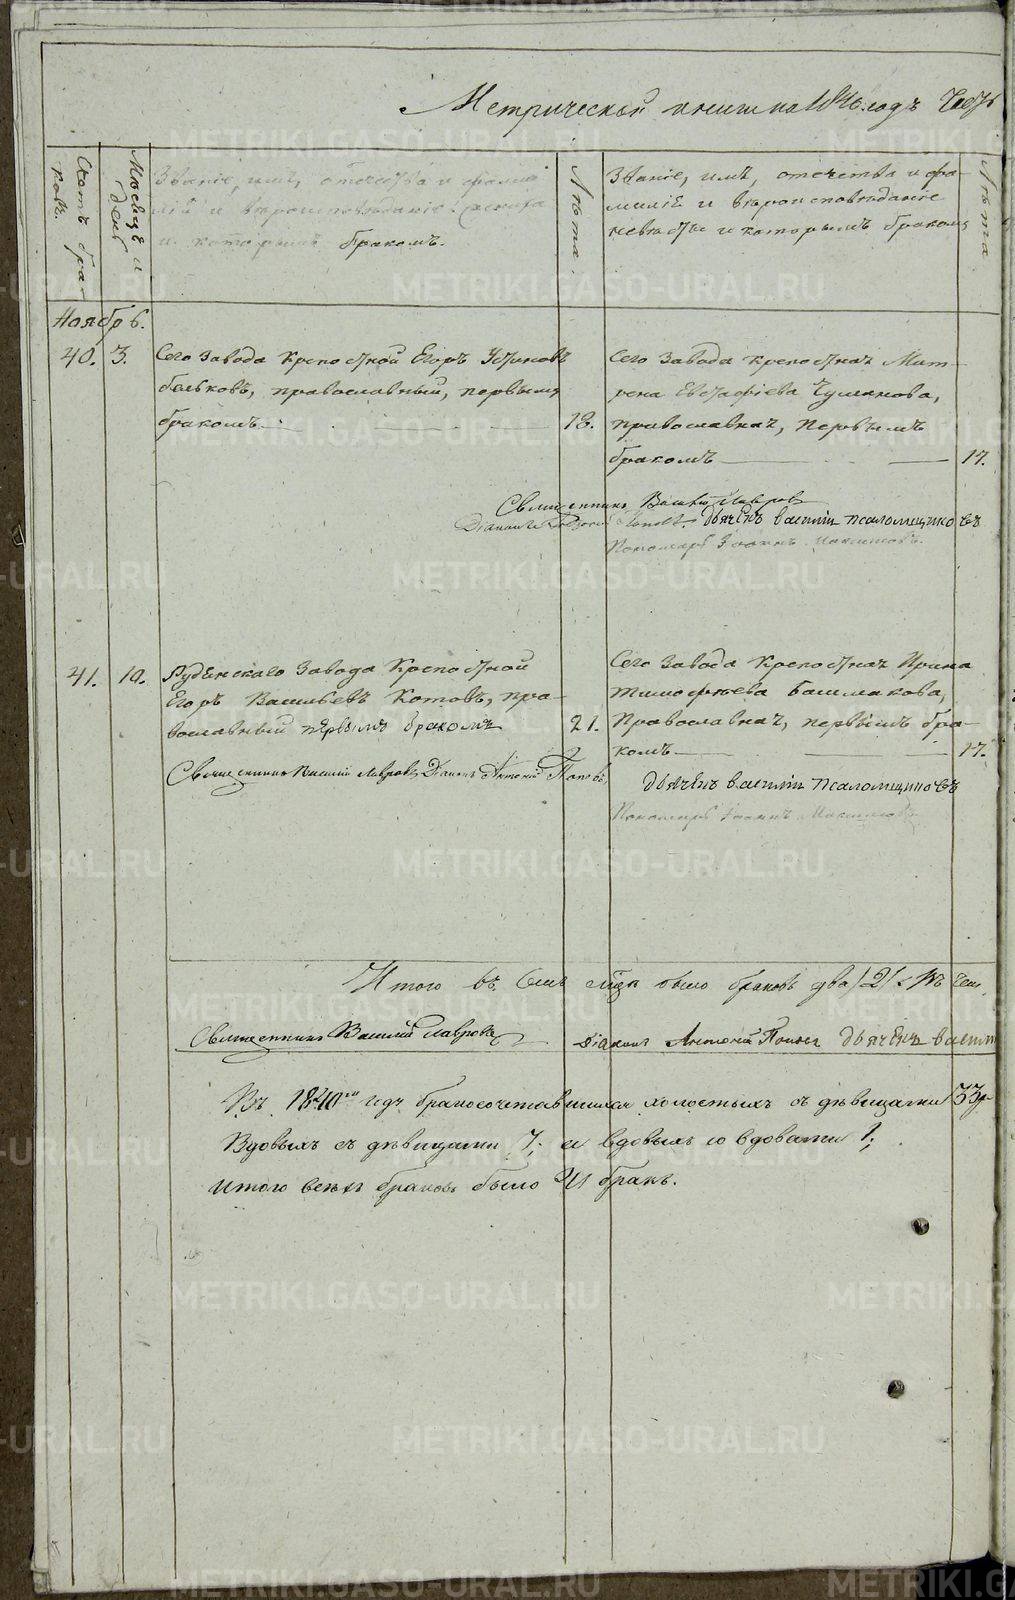 Метрической книги на 1840. годъ
Счетъ бра-
ковъ.
Мѣсяцъ и
день
Званіе, имя, отечество и фами-
лія и вѣроисповѣданіе жениха
и которымъ бракомъ.
Лѣта
Званіе, имя, отечество и фа-
милія и вѣроисповѣданіе
невѣсты и которымъ бракомъ
Лѣта
Ноябрь.
40. 3. Сего Завода Крепостной Егоръ Устиновъ
православный, первымъ
бракомъ 18.
Сего Завода крепостная Мат-
рена Евстафіева
православная, первымъ
бракомъ 17.
Священникъ Василій Лавровъ
Діаконъ Антоній Поповъ Дьячекъ василіи псаломщиковъ
Пономарь Іоаннъ
41. 10. Завода Крепостной
Егоръ Васильевъ Котовъ, пра-
вославный первымъ бракомъ 21.
Сего Завода Крепостная Ирина
Тимофѣева Башмакова,
Православная, первымъ бра-
комъ 17.
Священникъ Василій Лавровъ Діаконъ Антоній Поповъ,
Дьячекъ василіи псаломщиковъ
Пономарь Іоаннъ
Итого въ семъ было браковъ два /2/
Священникъ Василій Лавровъ Діаконъ Антоній Поповъ Дьячекъ васил
Въ 1840мъ годѣ бракосочетавшихся холостыхъ съ дѣвицами 33,
Вдовыхъ съ дѣвицами 7, и вдовыхъ со вдовами 1,
итого всѣхъ браковъ было 41 бракъ.
METRIKI.GASO-URAL.RU